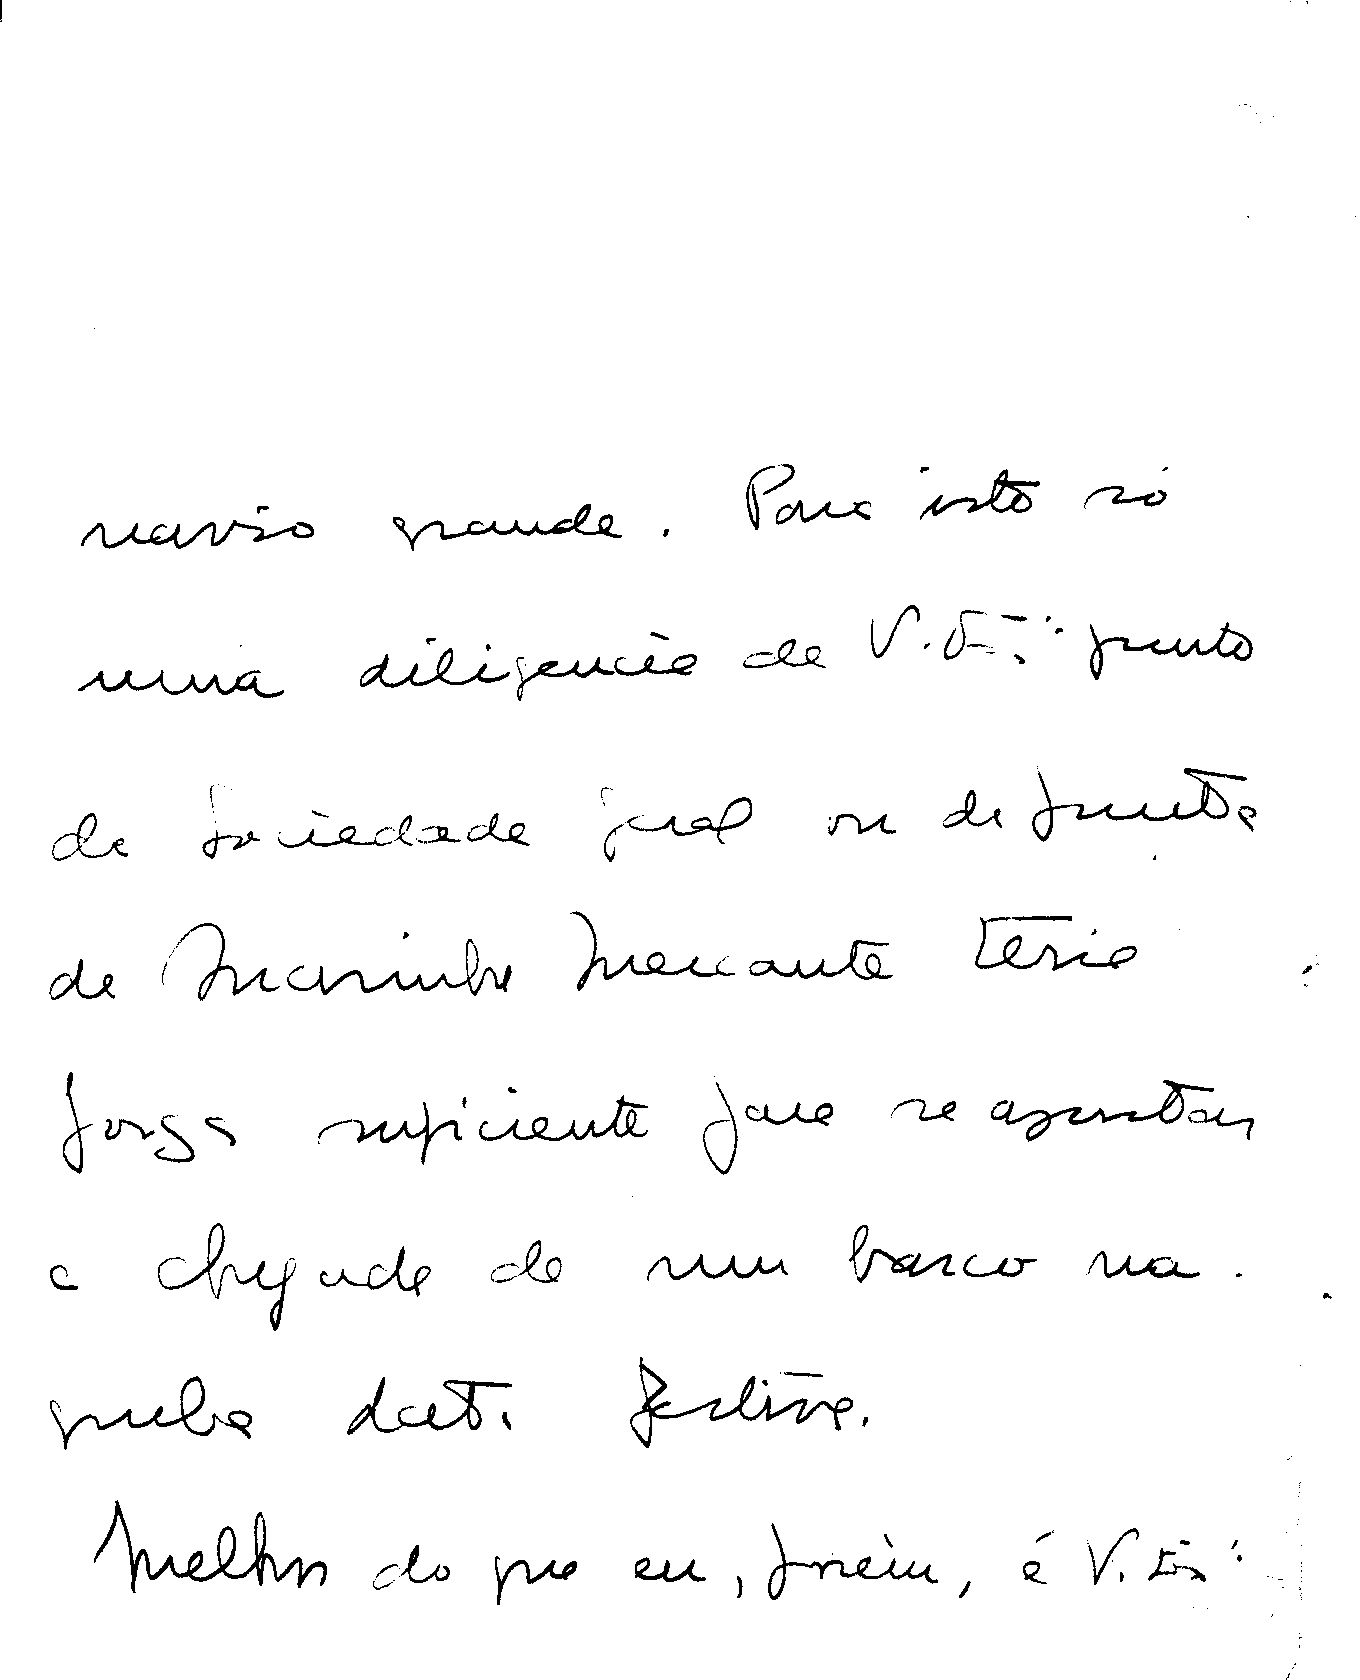 navio grande. Para isto só
uma diligencia de V. Exª junto
da Sociedade Geral ou da Junta
da Marinha Mercante teria
força suficiente para se ajustar
a chegada de um barco na
data festiva.
Melhor do que eu, porém, é V. Exª